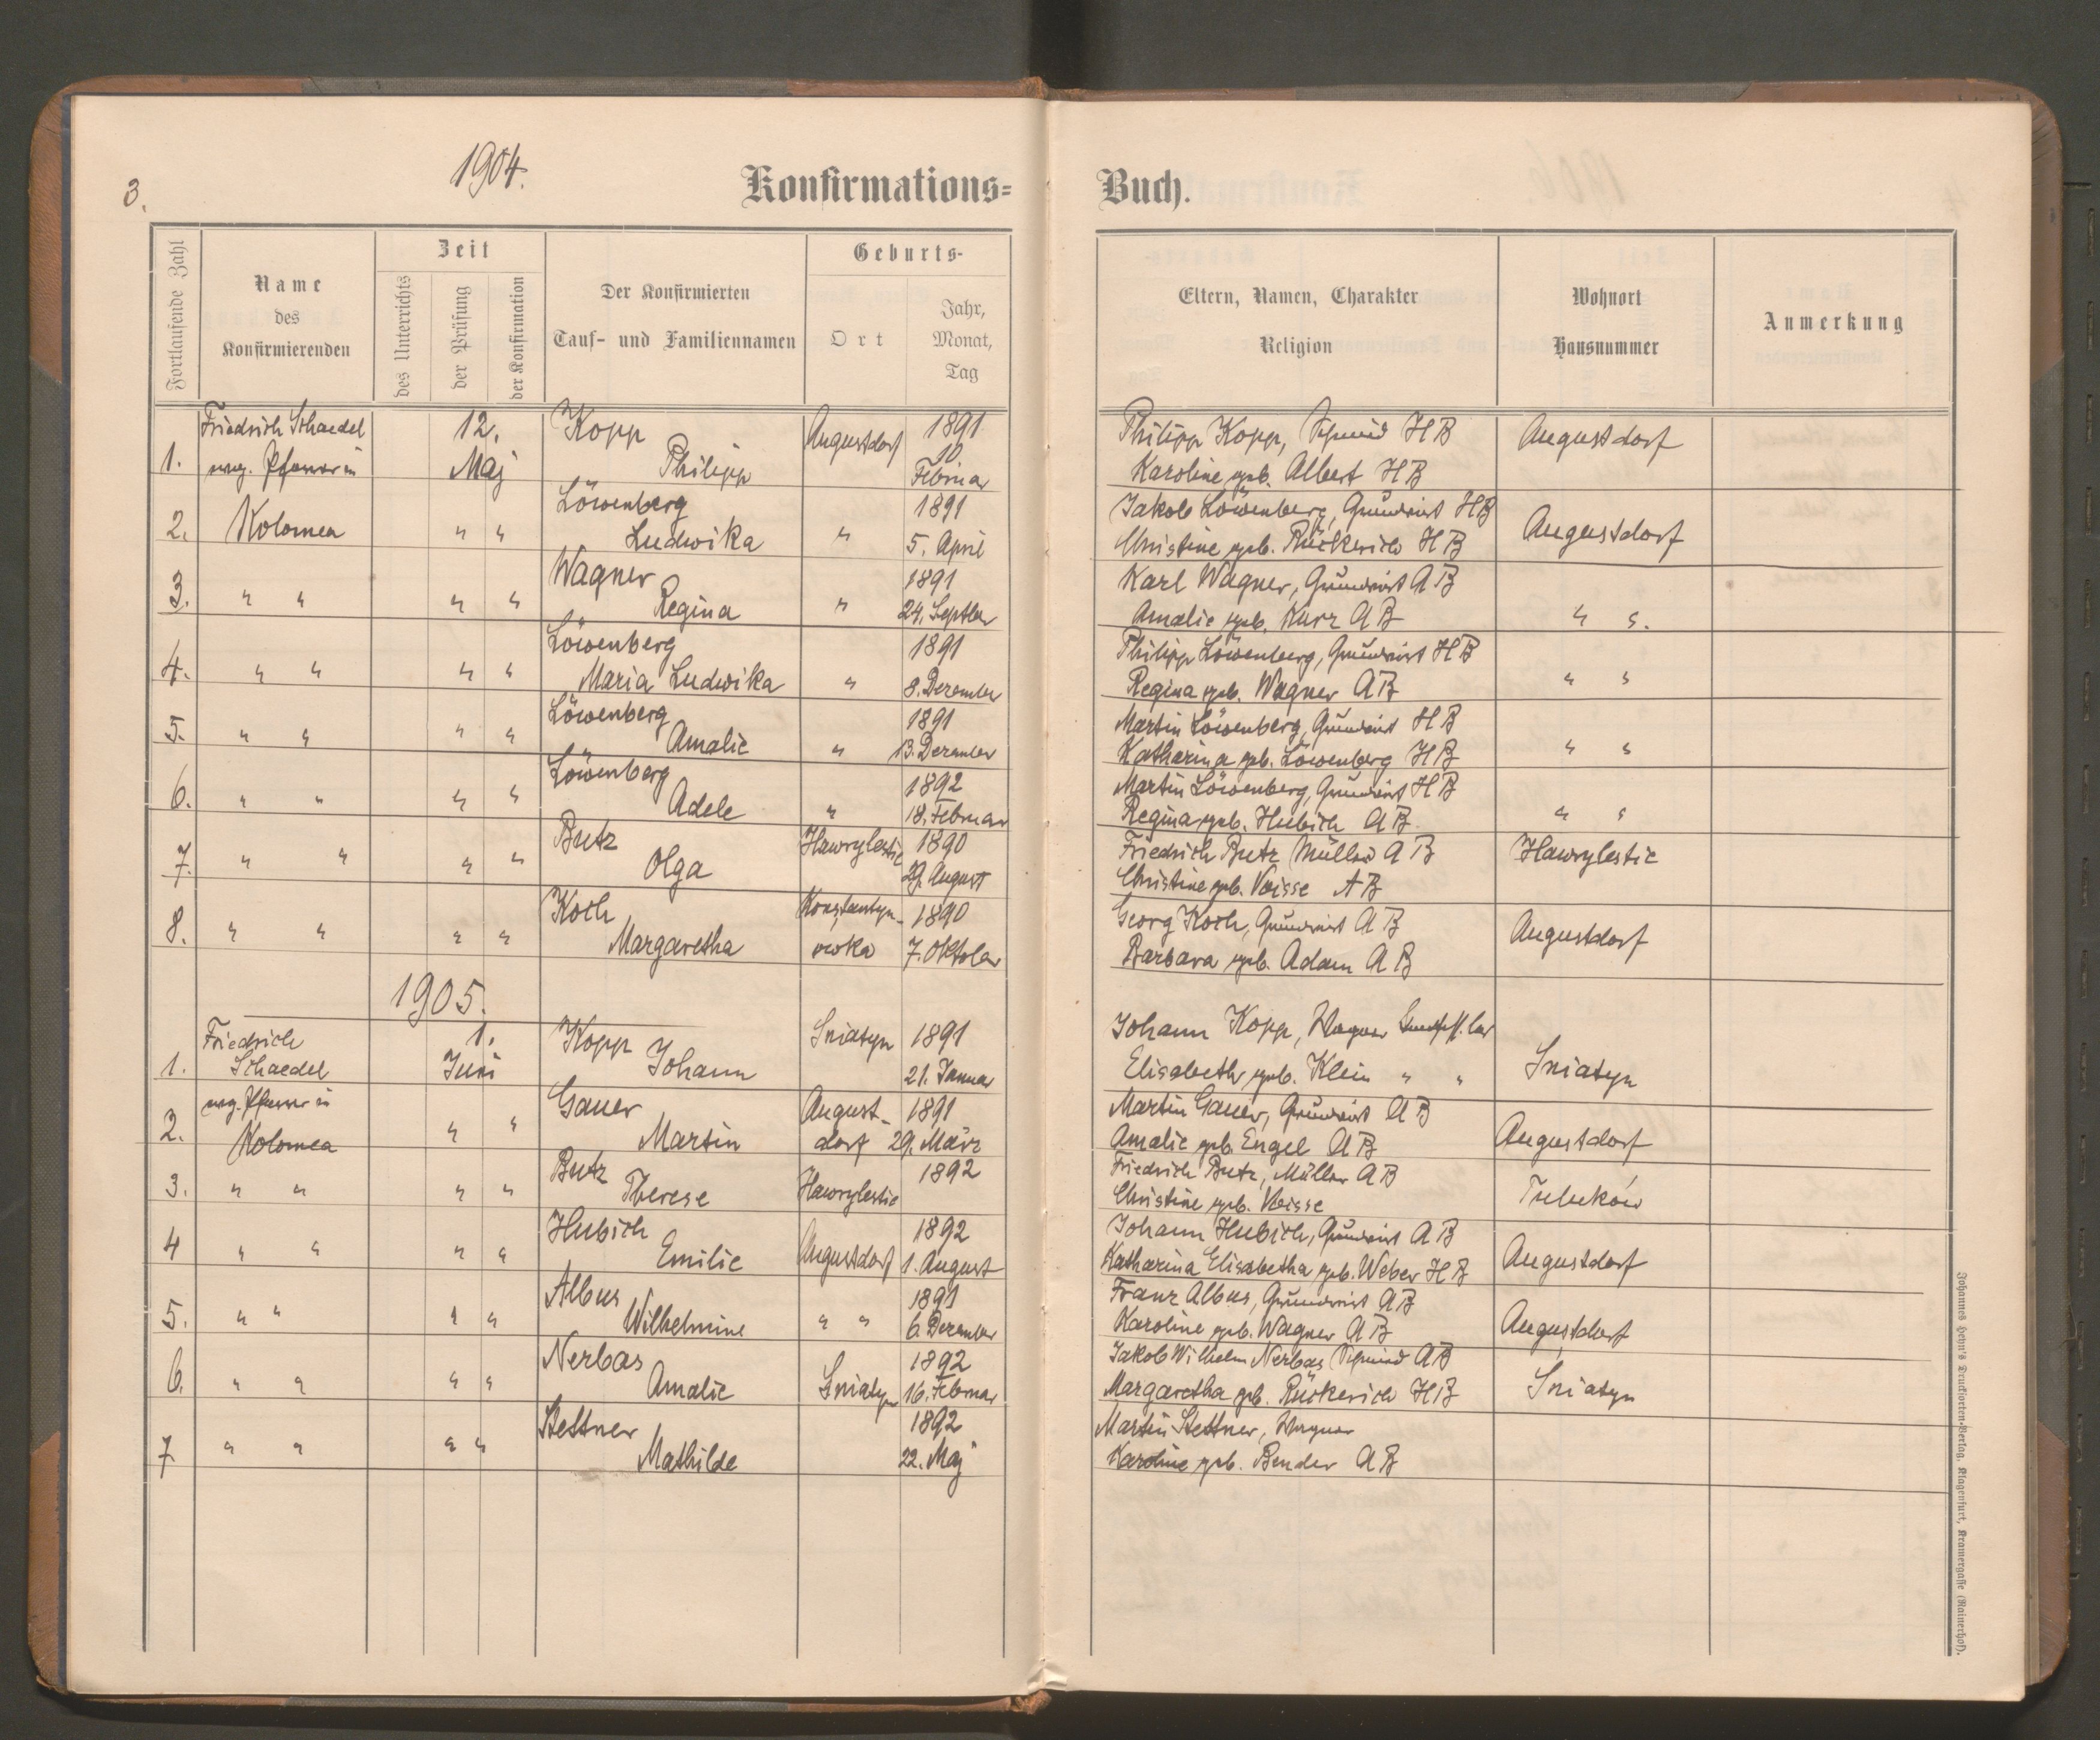 3.
1904.
Konfirmations=
Buch.
Fortlaufende Zahl
Name
des
Konfirmierenden
Zeit
des Unterrichts
der Prüfung
der Konfirmation
Der Konfirmierten
Tauf- und Familiennamen
Geburts-
Ort
Jahr,
Monat,
Tag
Eltern, Namen, Charakter
Religion
Wohnort
Hausnummer
Anmerkung
Friedrich Schaedel 12. Kopp Augustdorf 1891 Philipp Kopp, Schmied HB Augustdorf
1. evg. Pfarrer in Maj Philipp 10. Februar Karoline geb. Albert HB
Löwenberg 1891 Jakob Löwenberg, Grundwirt HB
2. Kolomea " " Ludwika " 5. April Christine geb. Rückerich HB Augustdorf
Wagner 1891 Karl Wagner, Grundwirt AB
3. " " " " Regina " 24. Septber Amalie geb. Kurz AB " "
Löwenberg 1891 Philipp Löwenberg, Grundwirt HB
4. " " " " Maria Ludwika " 8. Dezember Regina geb. Wagner AB " "
Löwenberg 1891 Martin Löwenberg, Grundwirt HB
5. " " " " Amalie " 13. Dezember Katharina geb. Löwenberg HB " "
Löwenberg 1892 Martin Löwenberg, Grundwirt HB
6. " " " " Adele " 18. Februar Regina geb. Hubich AB " "
Butz Hawrylestie 1890 Friedrich Butz Müller AB Hawrylestie
7. " " " " Olga 29. August Christine geb. Voisse AB
Koch Konstantyn- 1890 Georg Koch, Grundwirt AB
8. " " " " Margaretha owka 7. Oktober Barbara geb. Adam AB Augustdorf
1905.
Friedrich 1. Kopp Sniatyn 1891 Johann Kopp, Wagner
1. Schaedel Juni Johann 21. Januar Elisabeth geb. Klein " " Sniatyn
evg. Pfarrer in Gauer August- 1891 Martin Gauer, Grundwirt AB
2. Kolomea " " Martin dorf 29. März Amalie geb. Engel AB Augustdorf
Butz 1892 Friedrich Butz, Müller AB
3. " " " " Therese Hawrylestie Christine geb. Voisse Tulukow
Hubich 1892 Johann Hubich, Grundwirt AB
4 " " " " Emilie Augustdorf 1. August Katharina Elisabetha geb. Weber HB Augustdorf
Albus 1891 Franz Albus, Grundwirt AB
5. " " " " Wilhelmine " " 6. Dezember Karoline geb. Wagner AB Augustdorf
Nerbas 1892 Jakob Wilhelm Nerbas Schmied AB
6. " " " " Amalie Sniatyn 16. Februar Margaretha geb. Rückerich HB Sniatyn
Stettner 1892 Martin Stettner, Wagner
7 " " " " Mathilde 22. Maj Karoline geb. Bender AB
Johannes Heyn's Drucksorten-Verlag, Klagenfurt, Kramergasse (Rainerhof).